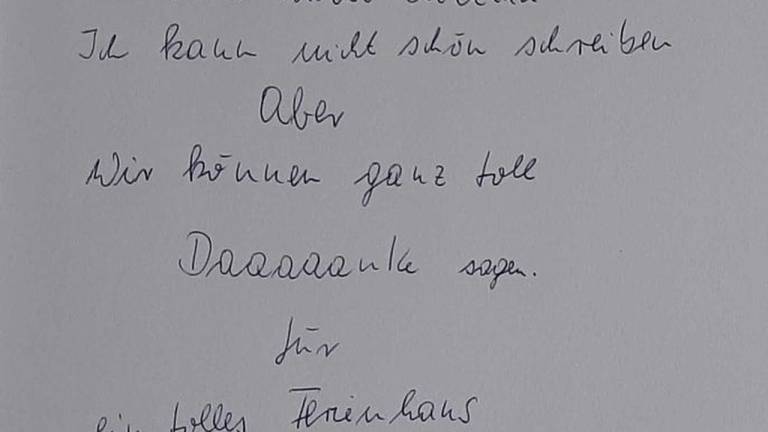 Ich kann nicht schön schreiben
Aber
Wir können ganz toll
Daaaaanke sagen.
für
ein tolles Ferienhaus